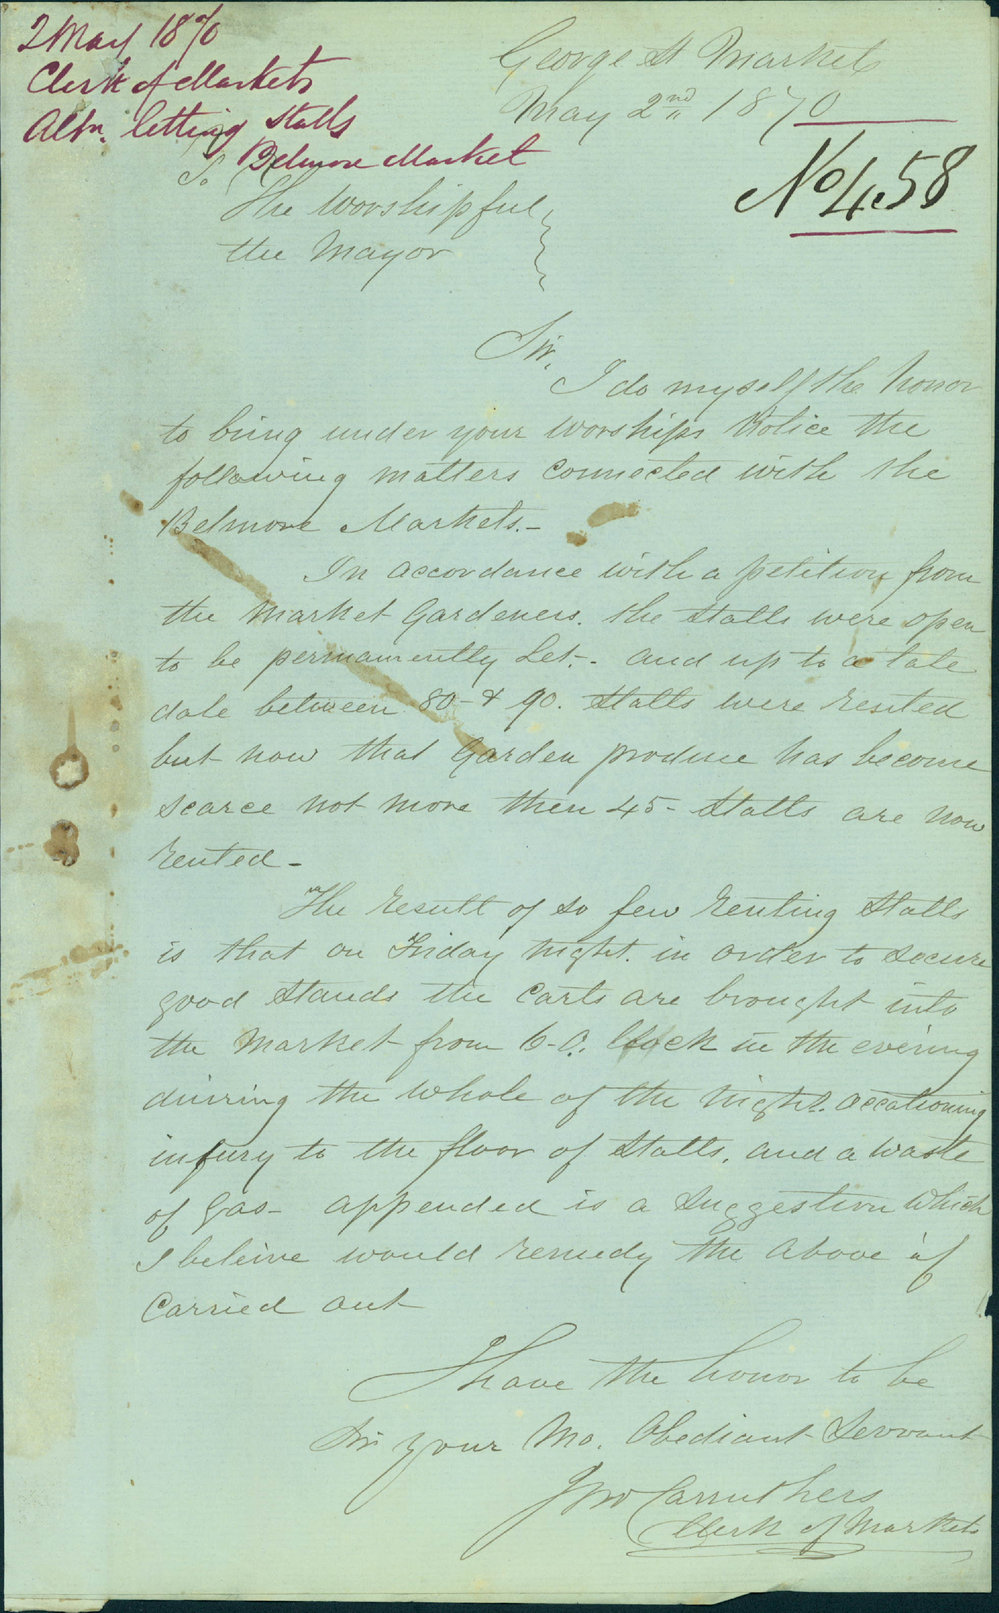 2 May 1870
Clerk of Markets
Altn. letting Stalls
Belmore Market
George St Markets
May 2nd 1870
No 458
To
The Worshipful
the Mayor
Sir,
I do myself the honor
to bring under your Worships Notice the
following matters connected with the
Belmore Markets.-
In accordance with a petition from
the Market Gardeners. the Stalls were open
to be permanently Let.- and up to a late
date between 80- & 90. Stalls were rented
but now that Garden produce has become
scarce not more then 45- Stalls are now
rented-
The result of so few renting Stalls
is that on Friday Night. in order to secure
good Stands the Carts are brought into
the Market from 6-O. Clock in the evening
durring the whole of the Night. occationing
injury to the floor of Stalls, and a waste
of Gas- appended is a Suggestion Which
I beleive would remedy the above if
Carried out
I have the honor to be
Sir your Mo. Obediant Servant
Jno Carruthers
Clerk of Markets